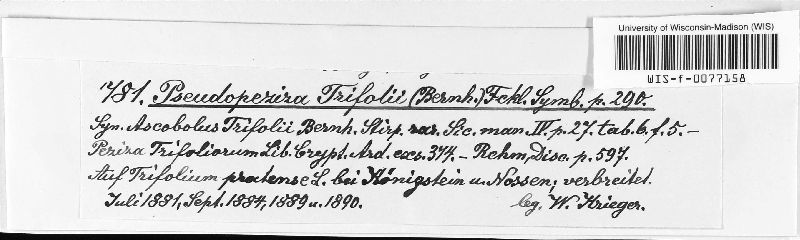 University of Wisconsin-Madison (WIS)
WIS-f-0077158
781. Pseudopeziza Trifolii (Bernh.) Fckl. Symb. p. 290.
Syn. Ascobolus Trifolii Bernh. Stirp. rar. Sic. man. IV. p. 27. tab. 6. f. 5. –
Peziza Trifoliorum Lib. Crypt. Ard. exs. 374. – Rehm, Disc. p. 597.
Auf Trifolium pratense L. bei Königstein u. Nossen; verbreitet.
Juli 1881, Sept. 1884, 1889 u. 1890. leg. W. Krieger.